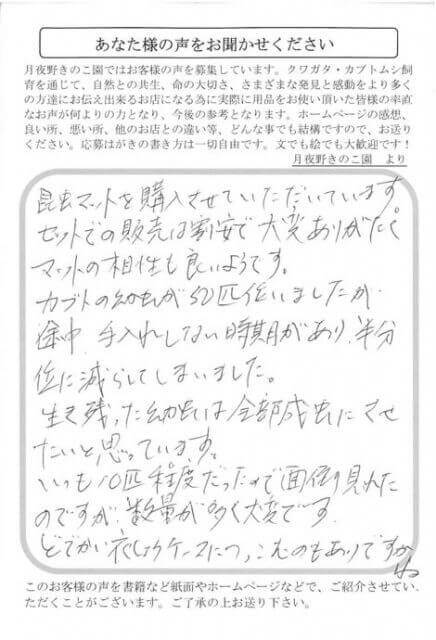 あなた様の声をお聞かせください
月夜野きのこ園ではお客様の声を募集しています。クワガタ・カブトムシ飼
育を通じて、自然との共生、命の大切さ、さまざまな発見と感動をより多く
の方達にお伝え出来るお店になる為に実際に用品をお使い頂いた皆様の率直
なお声が何よりの力となり、今後の参考となります。ホームページの感想、
良い所、悪い所、他のお店との違い等、どんな事でも結構ですので、お送り
ください。応募はがきの書き方は一切自由です。文でも絵でも大歓迎です！
月夜野きのこ園　より
昆虫マットを購入させていただいています。
セットでの販売は割安で大変ありがたく
マットの相性も良いようです。
カブトの幼虫が50匹位いましたが
途中、手入れしない時期があり、半分
位に減らしてしまいました。
生き残った幼虫は全部成虫にさせ
たいと思っています。
いつも10匹程度だったので面倒を見れた
のですが、数量が多く大変です。
どでかい衣しょうケースにつっこむのもありですかね
このお客様の声を書籍など紙面やホームページなどで、ご紹介させてい
ただくことがございます。ご了承の上お送り下さい。